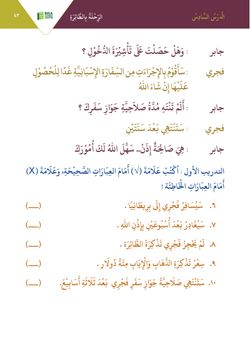 الدَّرْسُ السَّادِسُ
الرِّحْلَةُ بِالطَّائِرَةِ
٨٣
جابر : وَهَلْ حَصَلْتَ عَلَى تَأْشِيْرَةِ الدُّخُوْلِ ؟
فجري : سَأَقُوْمُ بِالإِجْرَاءَاتِ مِنَ السِّفَارَةِ الإِسْبَانِيَّةِ غَدًا لِلْحُصُوْلِ
عَلَيْهَا إِنْ شَاءَ اللهُ
جابر : أَلَمْ تَنْتَهِ مُدَّةُ صَلَاحِيَّةِ جَوَازِ سَفَرِكَ ؟
فجري : سَتَنْتَهِي بَعْدَ سَنَتَيْنِ
جابر : هِيَ صَالِحَةٌ إِذَنْ.. سَهَّلَ اللهُ لَكَ أُمُوْرَكَ
التدريب الأول : أُكْتُبْ عَلَامَةَ (√) أَمَامَ العِبَارَاتِ الصَّحِيْحَةِ، وَعَلَامَةَ (X)
أَمَامَ العِبَارَاتِ الخَاطِئَةِ :
٦. سَيُسَافِرُ فَجْرِي إِلَى بِرِيْطَانِيَا. (....)
٧. سَيُغَادِرُ بَعْدَ أُسْبُوْعَيْنِ بِإِذْنِ اللهِ. (....)
٨. لَمْ يَحْجِزْ فَجْرِي تَذْكِرَةَ الطَّائِرَةِ. (....)
٩. سِعْرُ تَذْكِرَةِ الذَّهَابِ وَالإِيَابِ مِئَةُ دُولَارٍ. (....)
١٠. سَتَنْتَهِي صَلَاحِيَّةُ جَوَازِ سَفَرِ فَجْرِي بَعْدَ ثَلَاثَةِ أَسَابِيْعَ. (....)